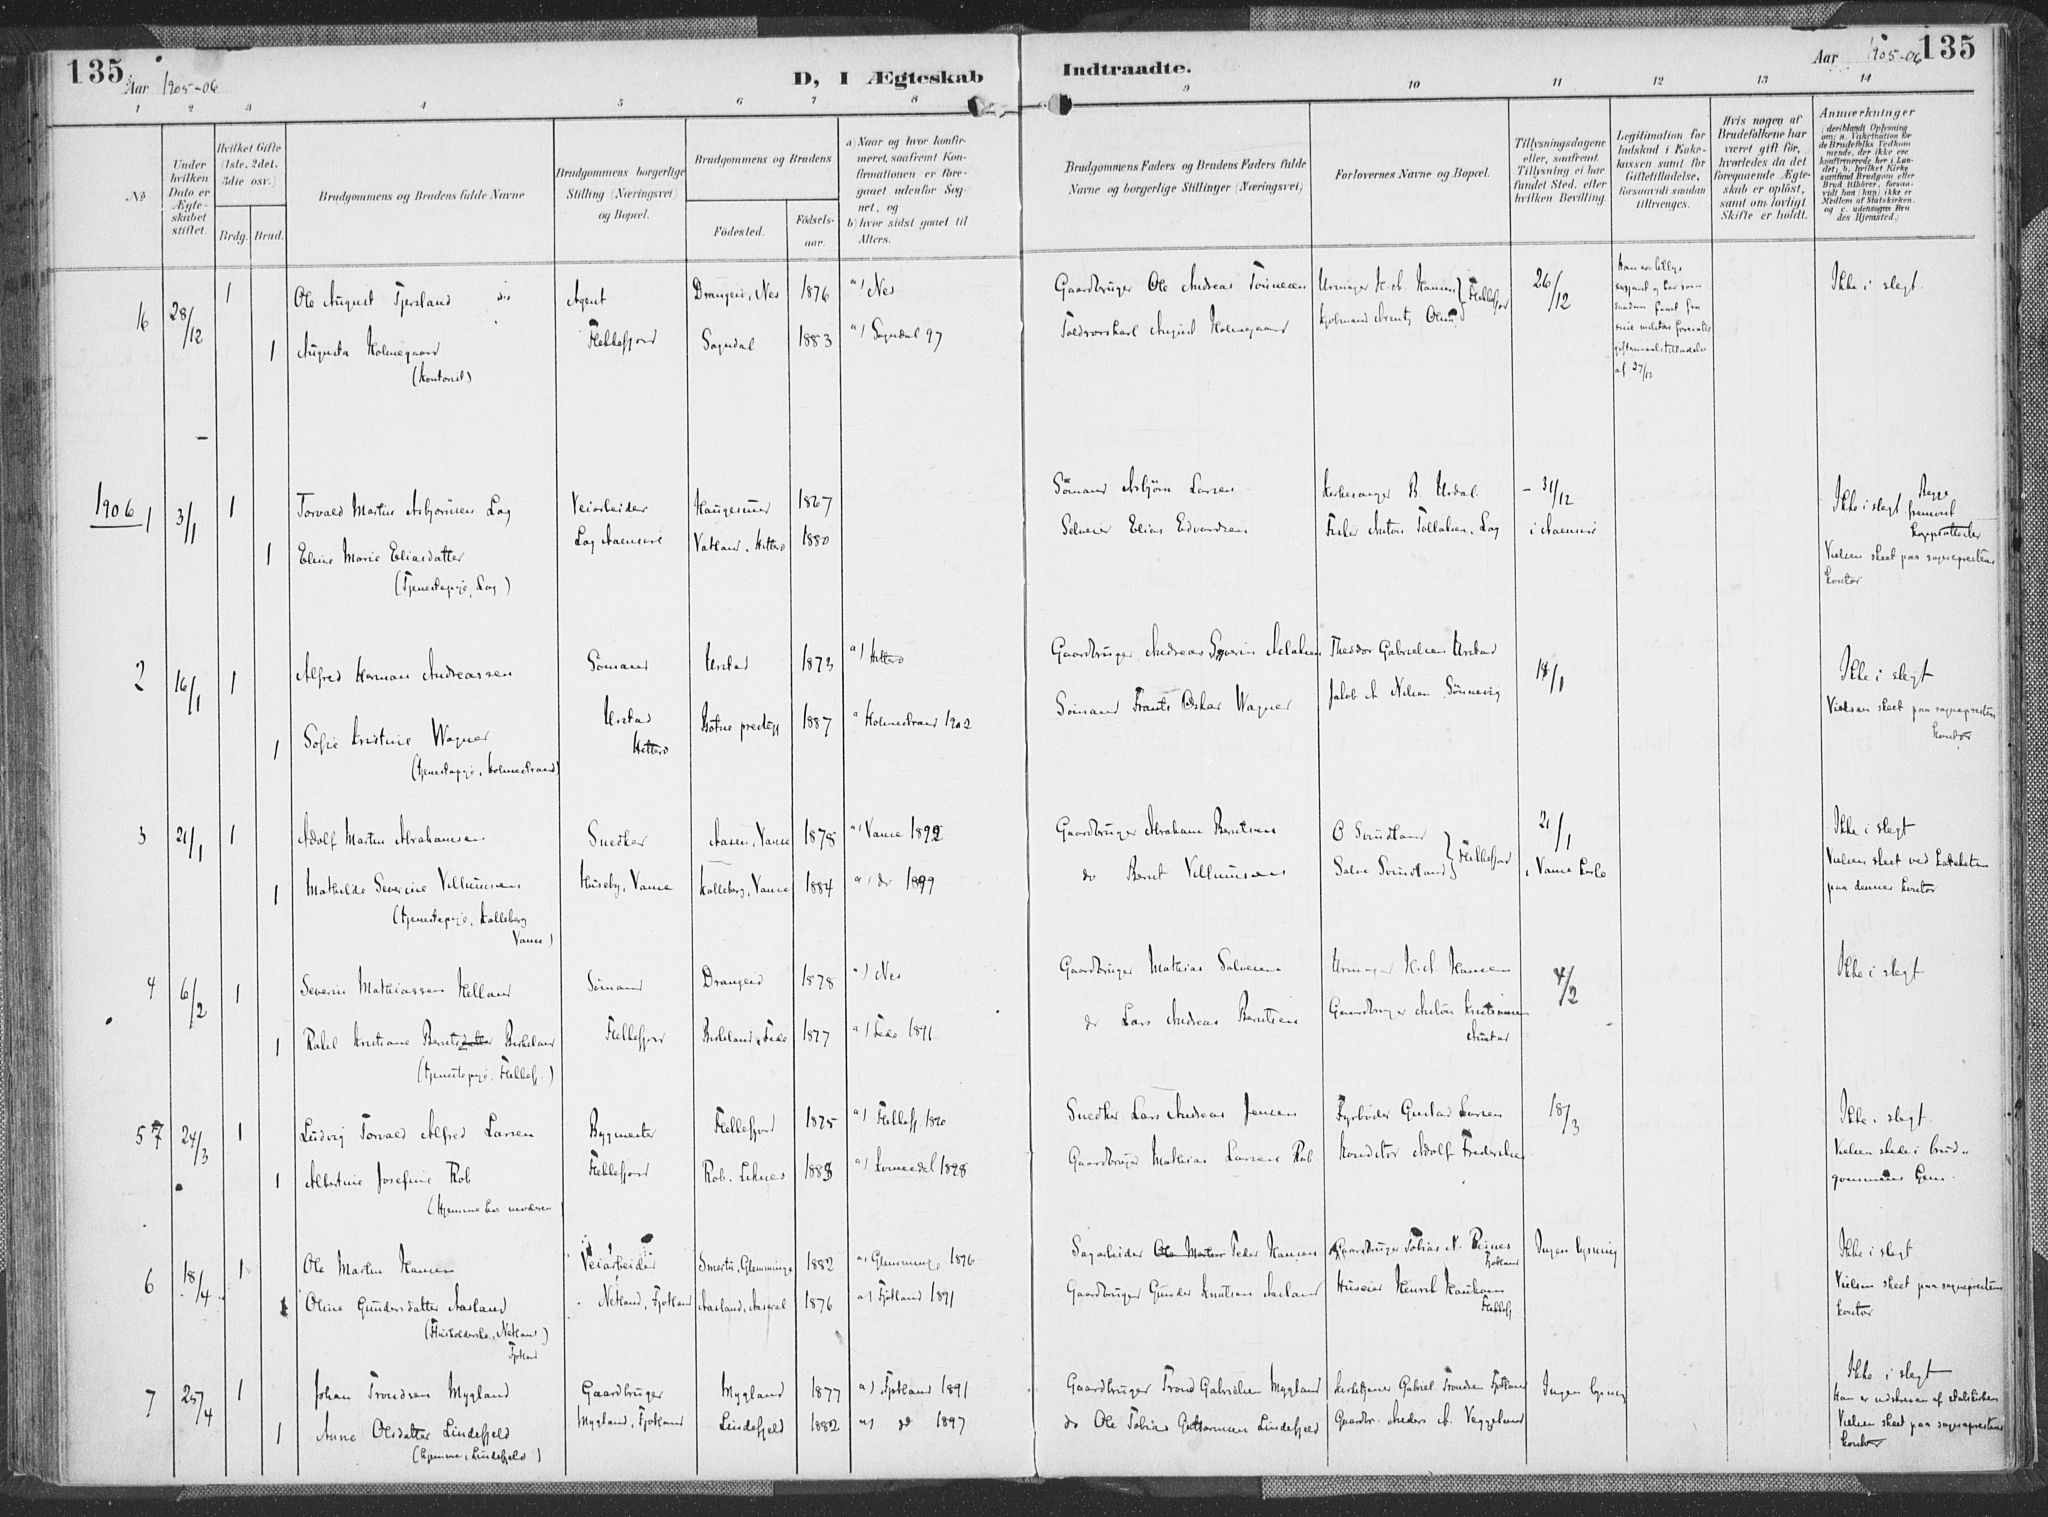 135 Aar 1905-06
D, I Ægteskab
Indtraadte.
Aar 1905-06 135
1 2 3 4 5 6 7 8 9 10 11 12 13 14
No
Under hvilken Dato er Ægteskabet stiftet.
Hvilket Gifte (1ste, 2det, 3die osv.)
Brdg. Brud.
Brudgommens og Brudens fulde Navne
Brudgommens borgerlige Stilling (Næringsvei) og Bopæl.
Brudgommens og Brudens
Födested. Födselsaar.
a) Naar og hvor konfirmeret, saafremt Konfirmationen er foregaaet udenfor Sognet, og
b) hvor sidst gaaet til Alters.
Brudgommens Faders og Brudens Faders fulde Navne og borgerlige Stillinger (Næringsvei)
Forlovernes Navne og Bopæl.
Tillysningsdagene eller, saafremt Tillysning ei har fundet Sted, efter hvilken Bevilling.
Legitimation for Indskud i Enkekassen samt for Giftetilladelse, forsaavidt saadan tiltrænges.
Hvis nogen af Brudefolkene har været gift för, hvorledes da det foregaaende Ægteskab er oplöst, samt om lovligt Skifte er holdt.
Anmærkninger
(deriblandt Oplysning om: a. Vakcination for de Brudefolks Vedkommende, der ikke ere konfirmerede her i Landet; b. hvilket Kirkesamfund Brudgom eller Brud tilhörer, forsaavidt han (hun) ikke er Medlem af Statskirken, og c. udensogns Brudes Hjemsted.)
16 28/12 1 Ole August Tjersland Agent Drangeid, Nes 1876 a) Nes Gaardbruger Ole Andreas Tönnesen Urmager H. A. Hansen 26/12 Ikke i slegt.
1 Augusta Holmegaard Flekkefjord Sogndal 1883 a) Sogndal 97 August Holmegaard Flekkefjord
af 27/12
1906 1 3/1 1 Torvald Martin Asbjörnsen Lag Veiarbeider Haugesund 1867 Sömand Asbjörn Larsen Kirkesanger B. Urdal - 31/12 Ikke i slegt
1 Eline Marie Eliasdatter Lag Aaensire Vatland, Hitterö 1880 Selveier Elias Edvardsen Fisker Anton Tollaksen, Lag i Aaensire
(Tjenestepige, Lag) Vielsen skeet paa sogneprestens kontor
2 16/1 1 Alfred Herman Andreassen Sömand Urstad 1873 a) Hitterö Gaardbruger Andreas Severin Aslaksen Theodor Gabrielsen Urstad 14/1 Ikke i slegt
1 Sofie Kristine Wagner Urstad Hitterö Botne prestegj 1887 a Holmestrand 1902 Sömand Frants Oskar Wagner Jakob A. Nilsen Sönnevig Vielsen skeet paa sogneprestens kontor
(tjenestepige, Holmestrand)
3 21/1 1 Adolf Martin Abrahamsen Snedker Aasen, Vanse 1878 a) Vanse 1892 Gaardbruger Abraham Berntsen O Svindland 21/1 Ikke i slegt
1 Mathilde Severine Villumsen Huseby, Vanse Kalleberg, Vanse 1884 a) do 1899 do Bernt Villumsen Salve Svindland Flekkefjord i Vanse Kirke Vielsen skeet ved Kateketen paa dennes kontor
(tjenestepige, Kalleberg Vanse)
4 6/2 1 Severin Mathiassen Helland Sömand Drangeid 1878 a) Nes Gaardbruger Mathias Salvesen Urmager H. A. Hansen 4/2 Ikke i slegt
1 Rakel Kristiane Berntsdatter Birkeland Flekkefjord Birkeland, Fede 1877 a) Fede 1891 do Lars Andreas Berntsen Gaardbruger Anton Kristensen
(tjenestepige, Flekkefj.)
5 24/3 1 Ludvig Torvald Alfred Larsen Bygmester Flekkefjord 1875 a) Flekkefj 1890 Snedker Lars Andreas Jensen Fyrböder Gustav Larsen 18/3 Ikke i slegt.
1 Albertine Josefine Rob Flekkefjord Rob. Liknes 1883 a) 1898 Gaardbruger Mathias Larsen Rob Konditor Adolf Fredriksen Vielsen skede i brudgommens hjem.
(Hjemme hos moderen)
6 18/4 1 Ole Martin Hansen Veiarbeider Smertu, Glemminge 1882 a) Glemminge 1896 Sagarbeider Ole Martin Peder Hansen Gaardbruger Tobias N. Fjotland Ingen lysning Ikke i slegt
1 Oline Gundersdatter Aasland Netland, Fjotland Aasland, Aaseral 1876 a) Fjotland 1891 Gaardbruger Gunder Knutsen Aasland Huseier Henrik Haukom Flekkefj Vielsen skeet paa sogneprestens kontor
(Husholderske, Netland Fjotland)
7 25/4 1 Johan Trondsen Mygland Gaardbruger Mygland 1877 a) Fjotland 1891 Gaardbruger Trond Gabrielsen Mygland Kirketjener Gabriel Trondsen Fjotland Ingen lysning Ikke i slegt
1 Anne Olsdatter Lindefjeld Mygland, Fjotland Lindefjeld 1882 a) do 1897 do Ole Tobias Guttormsen Lindefjeld Gaardbr. Anders A. Veggeland Han er udskreven af statskirken Vielsen skeet paa sogneprestens kontor
(hjemme, Lindefjeld)